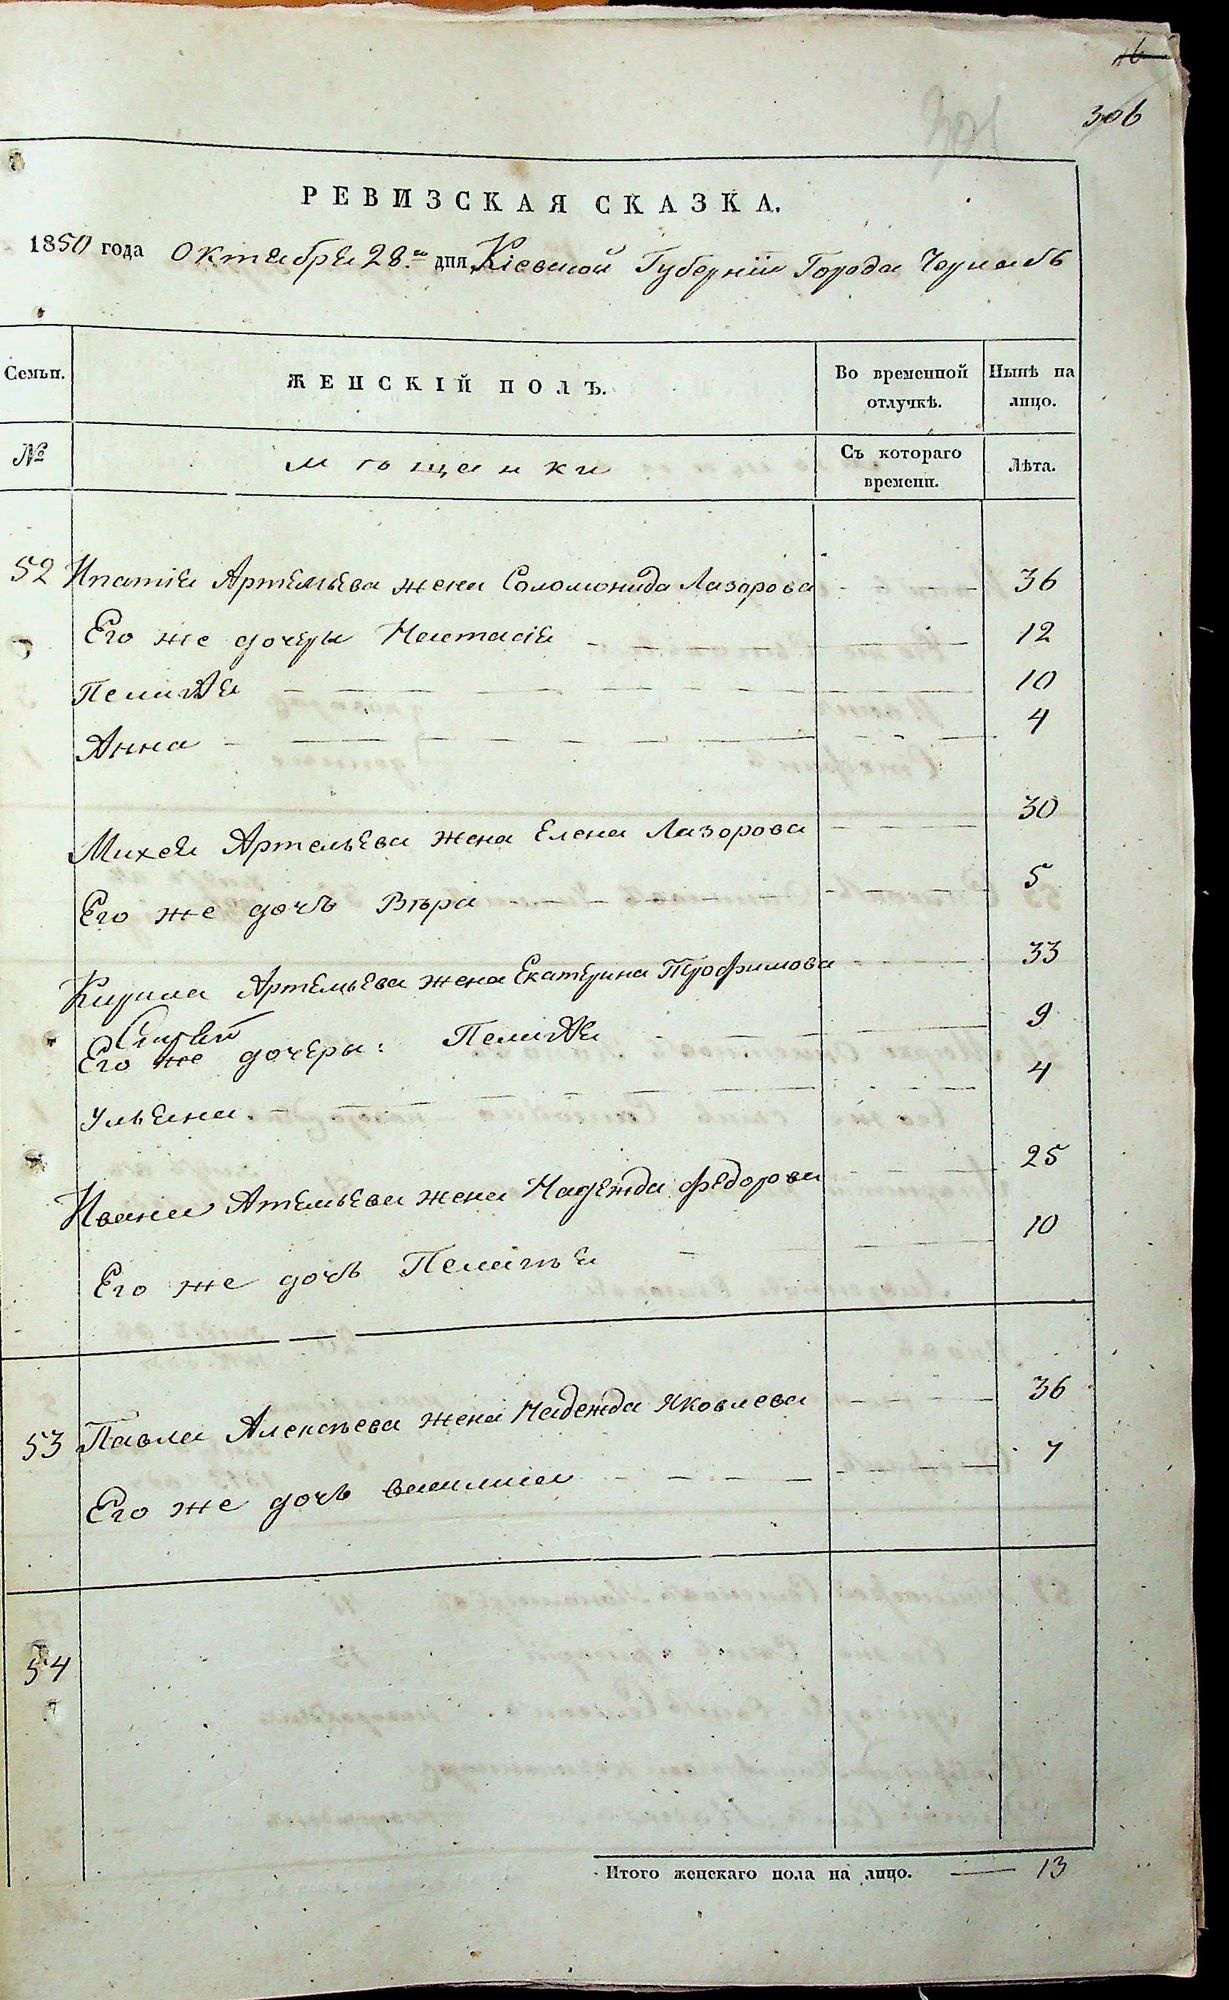 16
306
301
РЕВИЗСКАЯ СКАЗКА.
1850 года Октября 28го дня Кіевской Губерніи Города Черкасъ
Семьи. ЖЕНСКІЙ ПОЛЪ. Во временной отлучкѣ. Нынѣ на лицо.
№ мѣщанки Съ котораго времени. Лѣта.
52 Ипатія Артемьева жена Соломонида Лазорова 36
Его же дочеры Настасія 12
Пелагѣя 10
Анна 4
Михея Артемьева жена Елена Лазорова 30
Его же дочь Вѣра 5
Кирила Артемьева жена Екатерина Трофимова 33
Его же дочеры: Пелагѣя 9
Ульяна 4
Ивана Атемьева жена Надежда Федорова 25
Его же дочь Пелагѣя 10
53 Павла Алексѣева жена Надежда Яковлева 36
Его же дочь василиса 7
54
Итого женскаго пола на лицо. 13